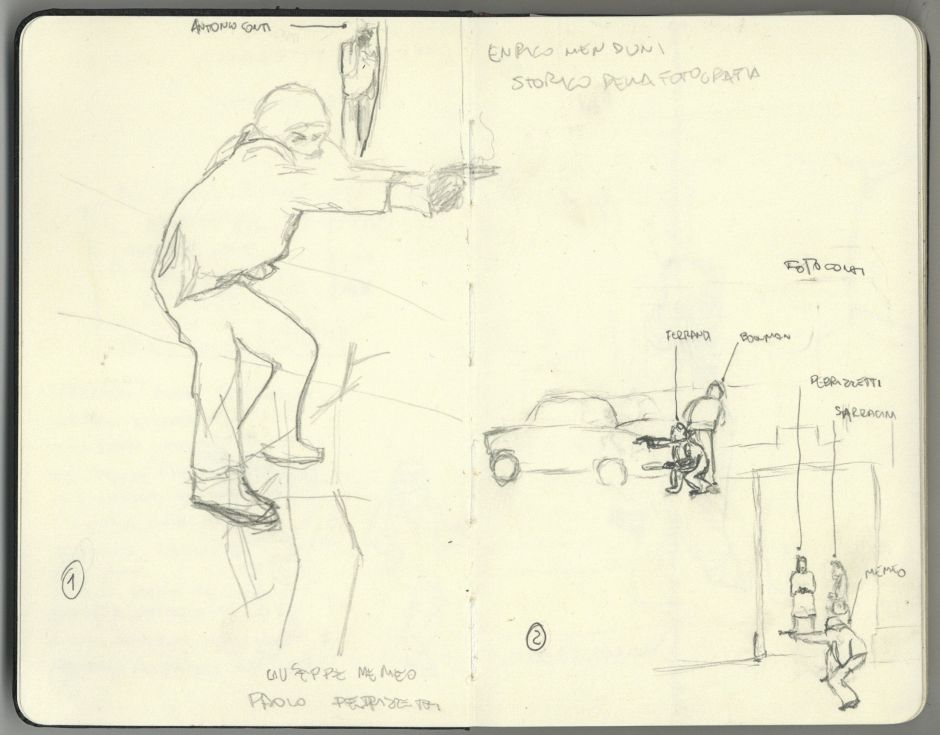 ANTONIO CONTI
1
GIUSEPPE MEMEO
PAOLO PEDRIZZETTI
ENRICO MENDUNI
STORICO DELLA FOTOGRAFIA
FERRANDI
PEDRIZZETTI
SARRACINI
MEMEO
2